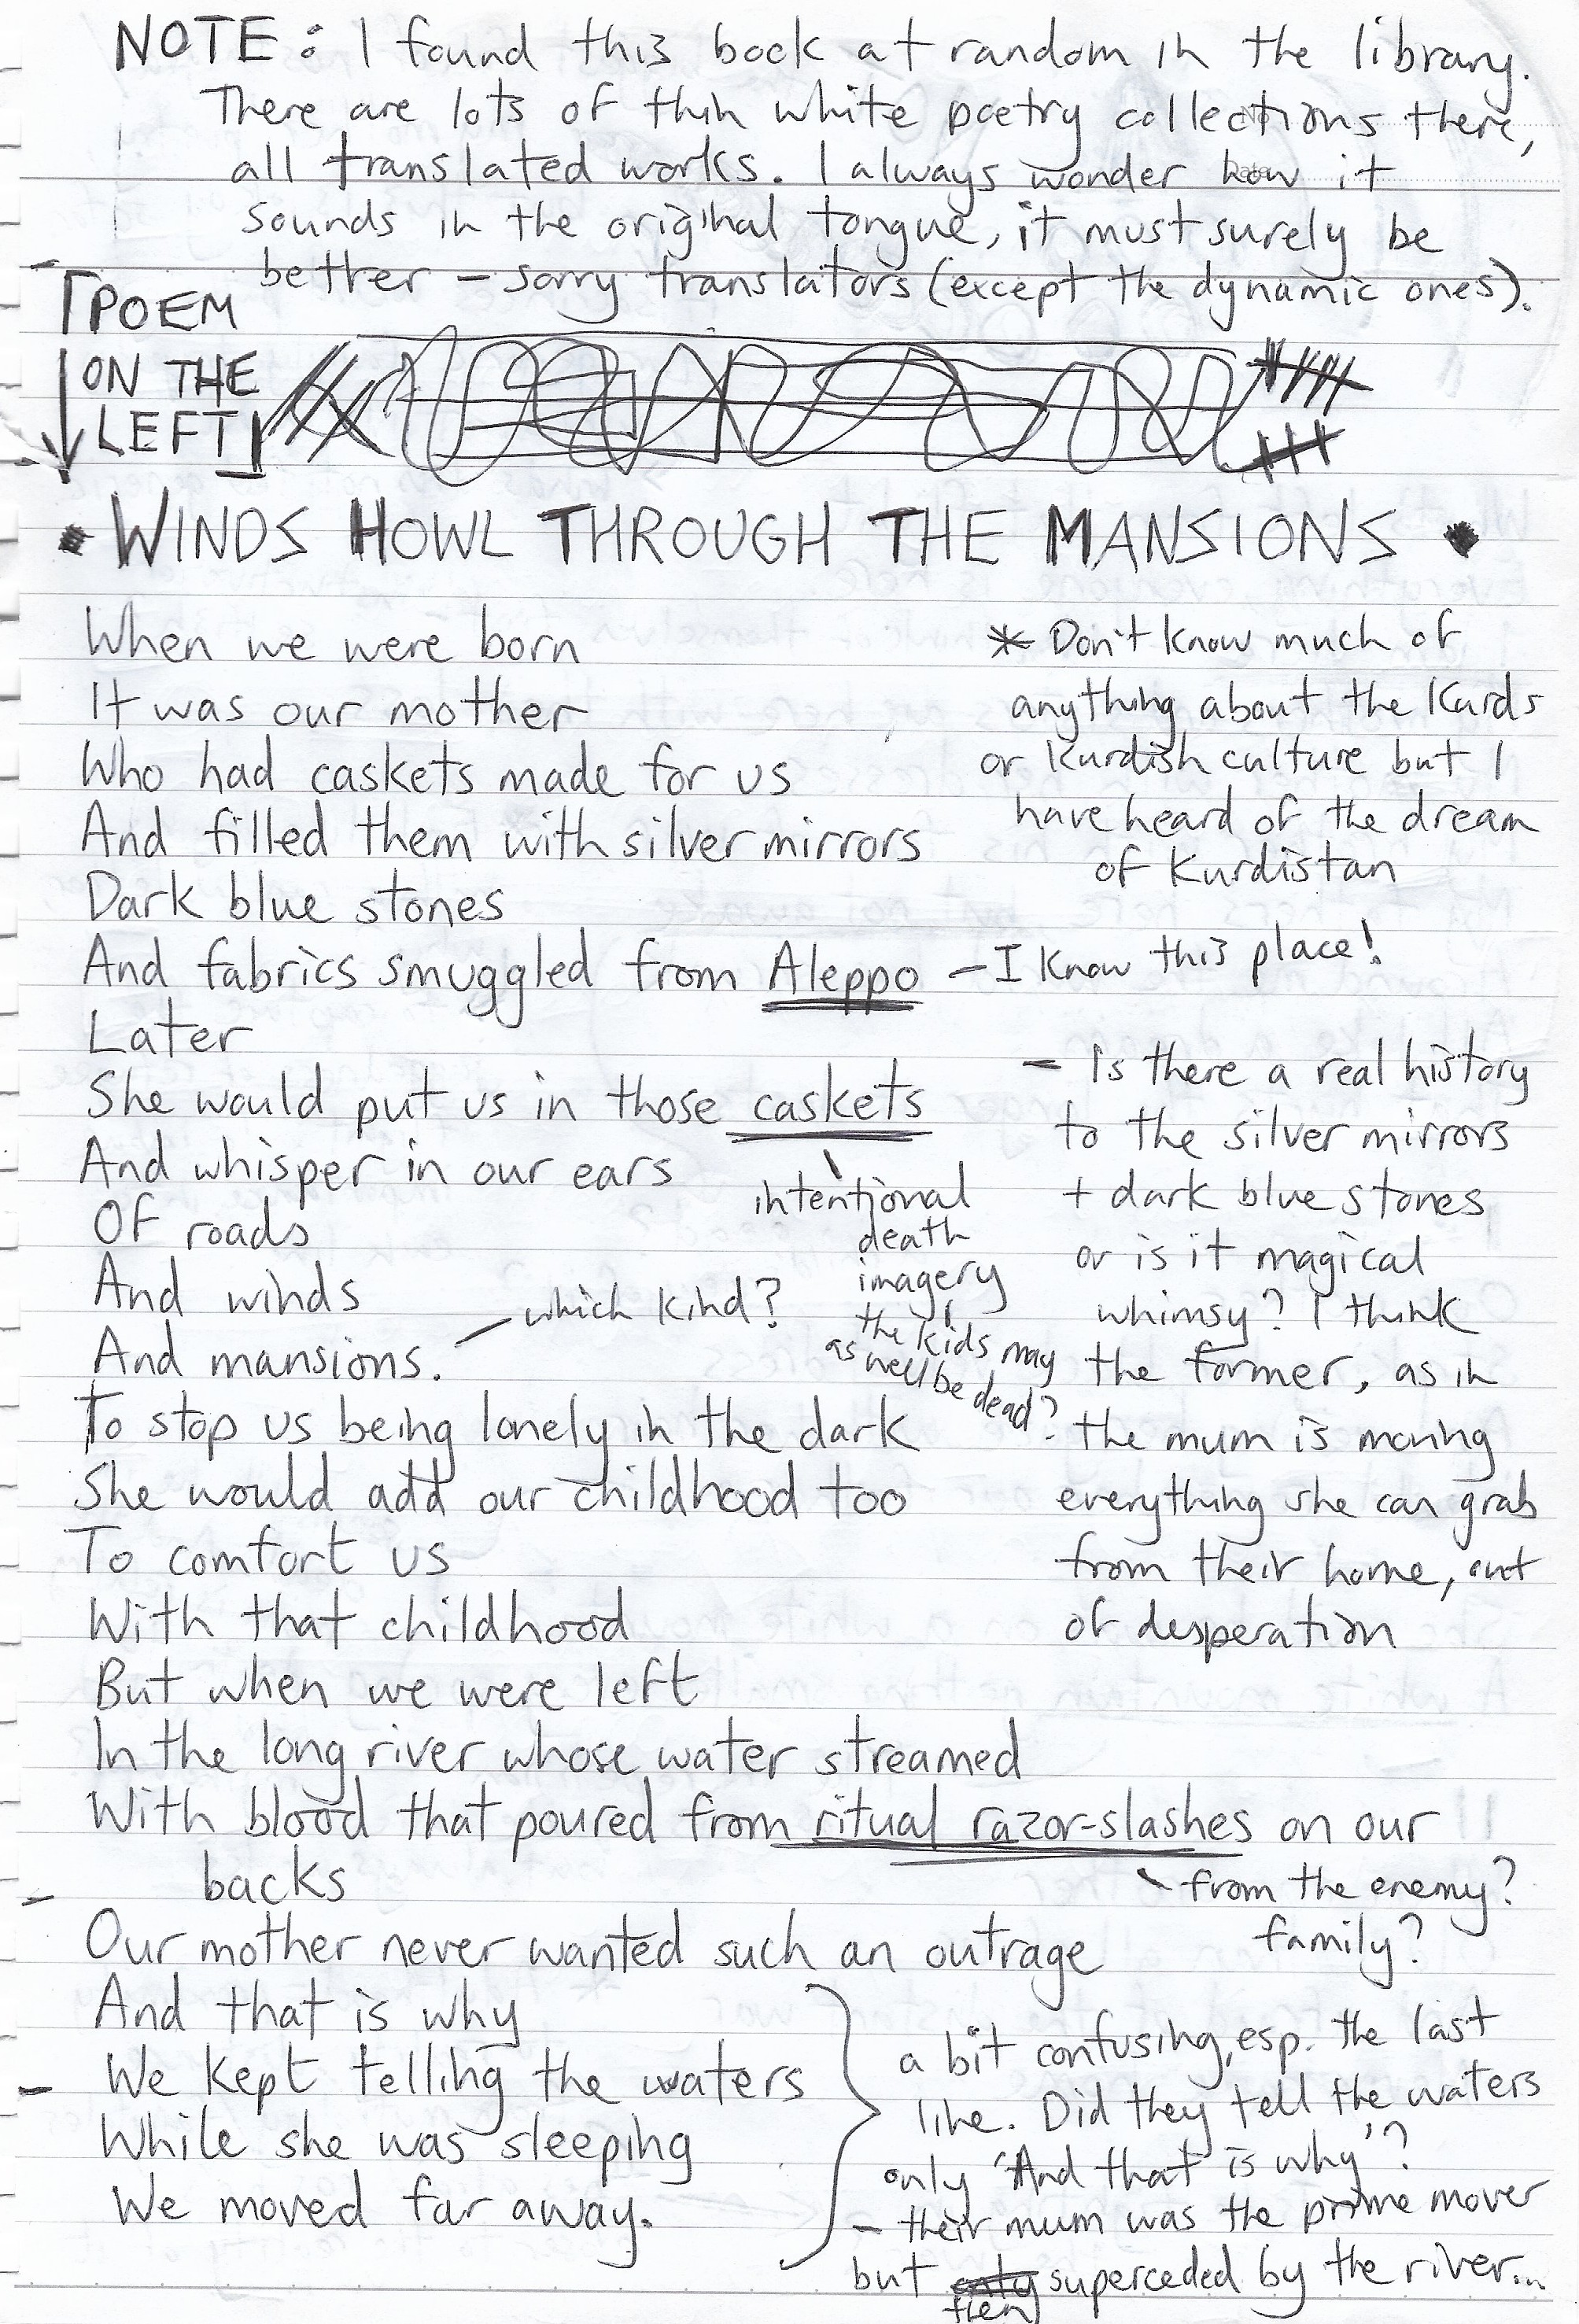 NOTE: I found this book at random in the library.
There are lots of thin white poetry collections there,
all translated works. I always wonder how it
sounds in the original tongue, it must surely be
better – sorry translators (except the dynamic ones).
POEM
ON THE
LEFT
• WINDS HOWL THROUGH THE MANSIONS •
When we were born
It was our mother
Who had caskets made for us
And filled them with silver mirrors
Dark blue stones
And fabrics smuggled from Aleppo – I know this place!
Later
She would put us in those caskets
And whisper in our ears
Of roads
And winds
And mansions. – which kind?
To stop us being lonely in the dark
She would add our childhood too
To comfort us
With that childhood
But when we were left
In the long river whose water streamed
With blood that poured from ritual razor-slashes on our
backs
Our mother never wanted such an outrage
And that is why
We kept telling the waters
While she was sleeping
We moved far away.
* Don't know much of
anything about the Kurds
or Kurdish culture but I
have heard of the dream
of Kurdistan
intentional
death
imagery
the kids may
as well be dead?
– Is there a real history
to the silver mirrors
+ dark blue stones
or is it magical
whimsy? I think
the former, as in
the mum is moving
everything she can grab
from their home, out
of desperation
from the enemy?
family?
a bit confusing, esp. the last
line. Did they tell the waters
only 'And that is why'?
– their mum was the prime mover
but then superceded by the river...